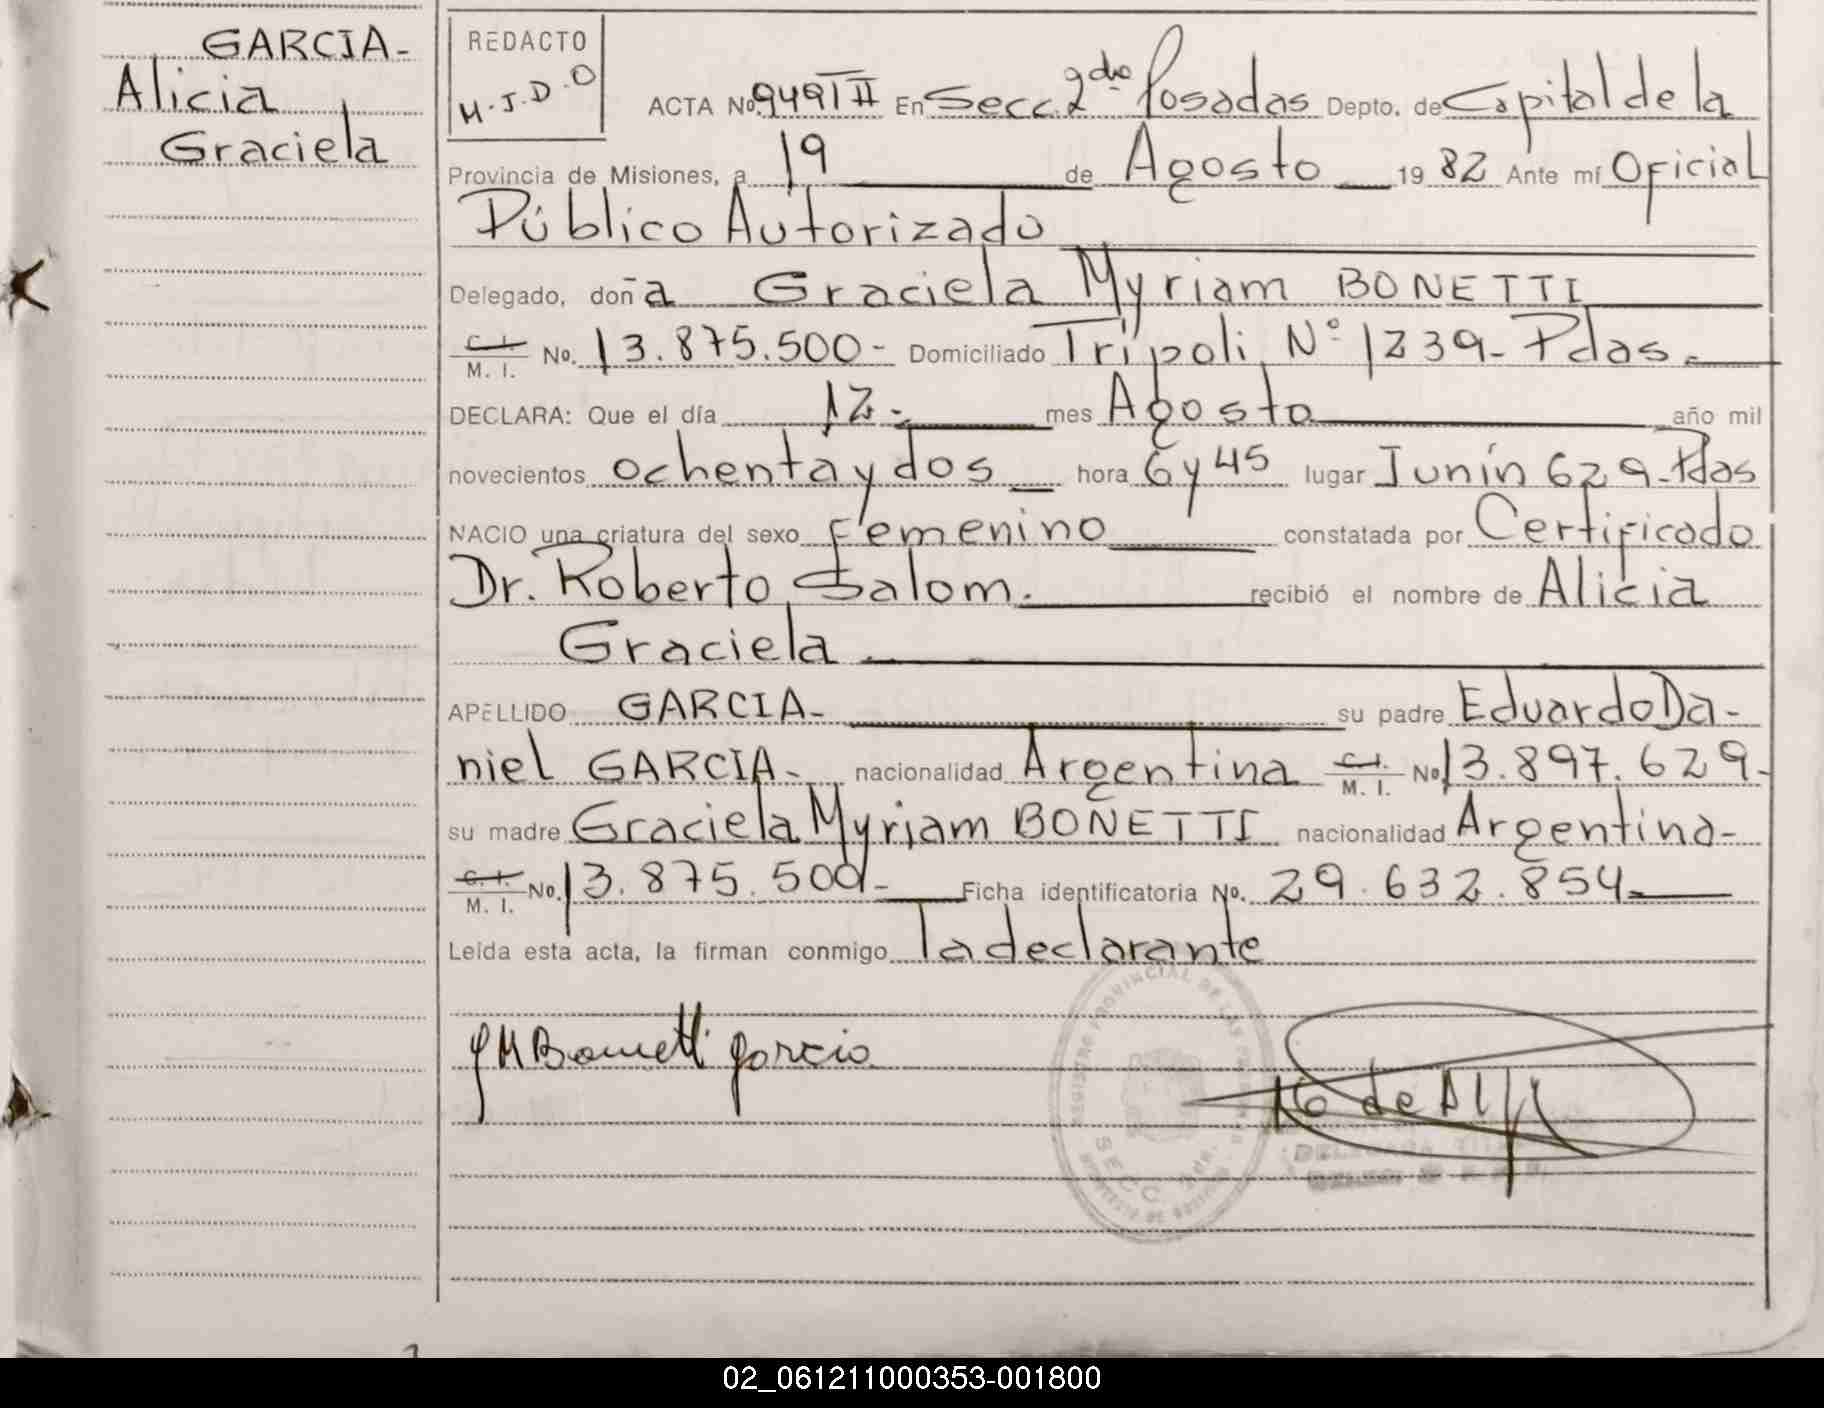 GARCIA-
Alicia
Graciela
REDACTO
M.J.D.O
ACTA No. 949 T II En Secc. 2da Posadas Depto. de Capital de la
Provincia de Misiones, a 19 de Agosto 19 82 Ante mí Oficial
Público Autorizado
Delegado, doña Graciela Myriam BONETTI
C.I. M. I. No. 13.875.500- Domiciliado Trípoli Nº 1239- Pdas.
DECLARA: Que el día 12- mes Agosto año mil
novecientos ochenta y dos hora 6 y 45 lugar Junín 629-Pdas
NACIO una criatura del sexo Femenino constatada por Certificado
Dr. Roberto Salom. recibió el nombre de Alicia
Graciela
APELLIDO GARCIA- su padre Eduardo Da-
niel GARCIA- nacionalidad Argentina C.I. M. I. No 13.897.629-
su madre Graciela Myriam BONETTI nacionalidad Argentina-
C.I. M. I. No. 13.875.500- Ficha identificatoria No. 29.632.854-
Leída esta acta, la firman conmigo la declarante
GM Bonetti Garcia
REGISTRO PROVINCIAL DE LAS PERSONAS
SECC. 2da.
DELEGADA TITULAR
02_061211000353-001800